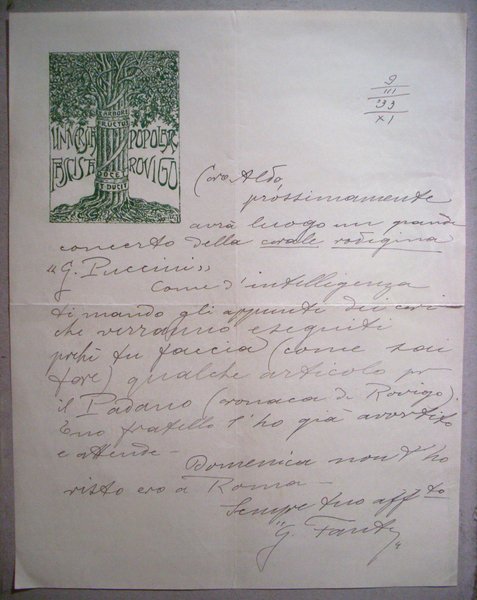 9
III
'33
XI
ARBOR
FRUCTUS
UNIVERSITÀ POPOLAR
FASCISTA ROVIGO
DOCET
ET DUCIT
Caro Aldo,
prossimamente
avrà luogo un grande
concerto della corale rodigina
"G. Puccini"
Come d'intelligenza
ti mando gli appunti dei cori
che verranno eseguiti
perchè tu faccia (come sai
fare) qualche articolo pr
il Padano (cronaca di Rovigo).
fratello l'ho già avvertito
e attende -
Domenica non t'ho
visto ero a Roma -
Sempre tuo aff to
"G. Fanti"